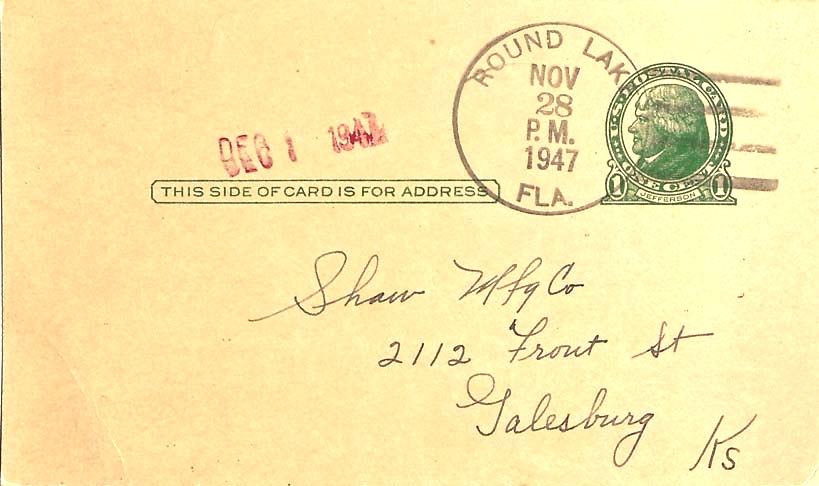 ROUND LAKE
NOV
28
P.M.
1947
FLA.
U.S. POSTAL CARD
ONE CENT
1 JEFFERSON 1
DEC 1 1947
THIS SIDE OF CARD IS FOR ADDRESS
Shaw Mfg Co
2112 Front St
Galesburg
Ks